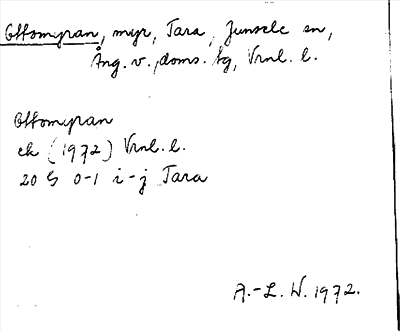 Ottomyran, myr, Tara, Junsele sn,
Ång. v., doms. tg, Vrnl. l.
Ottomyran
ek (1972) Vrnl. l.
20 G 0-1 i-j Tara
A.-L. W. 1972.